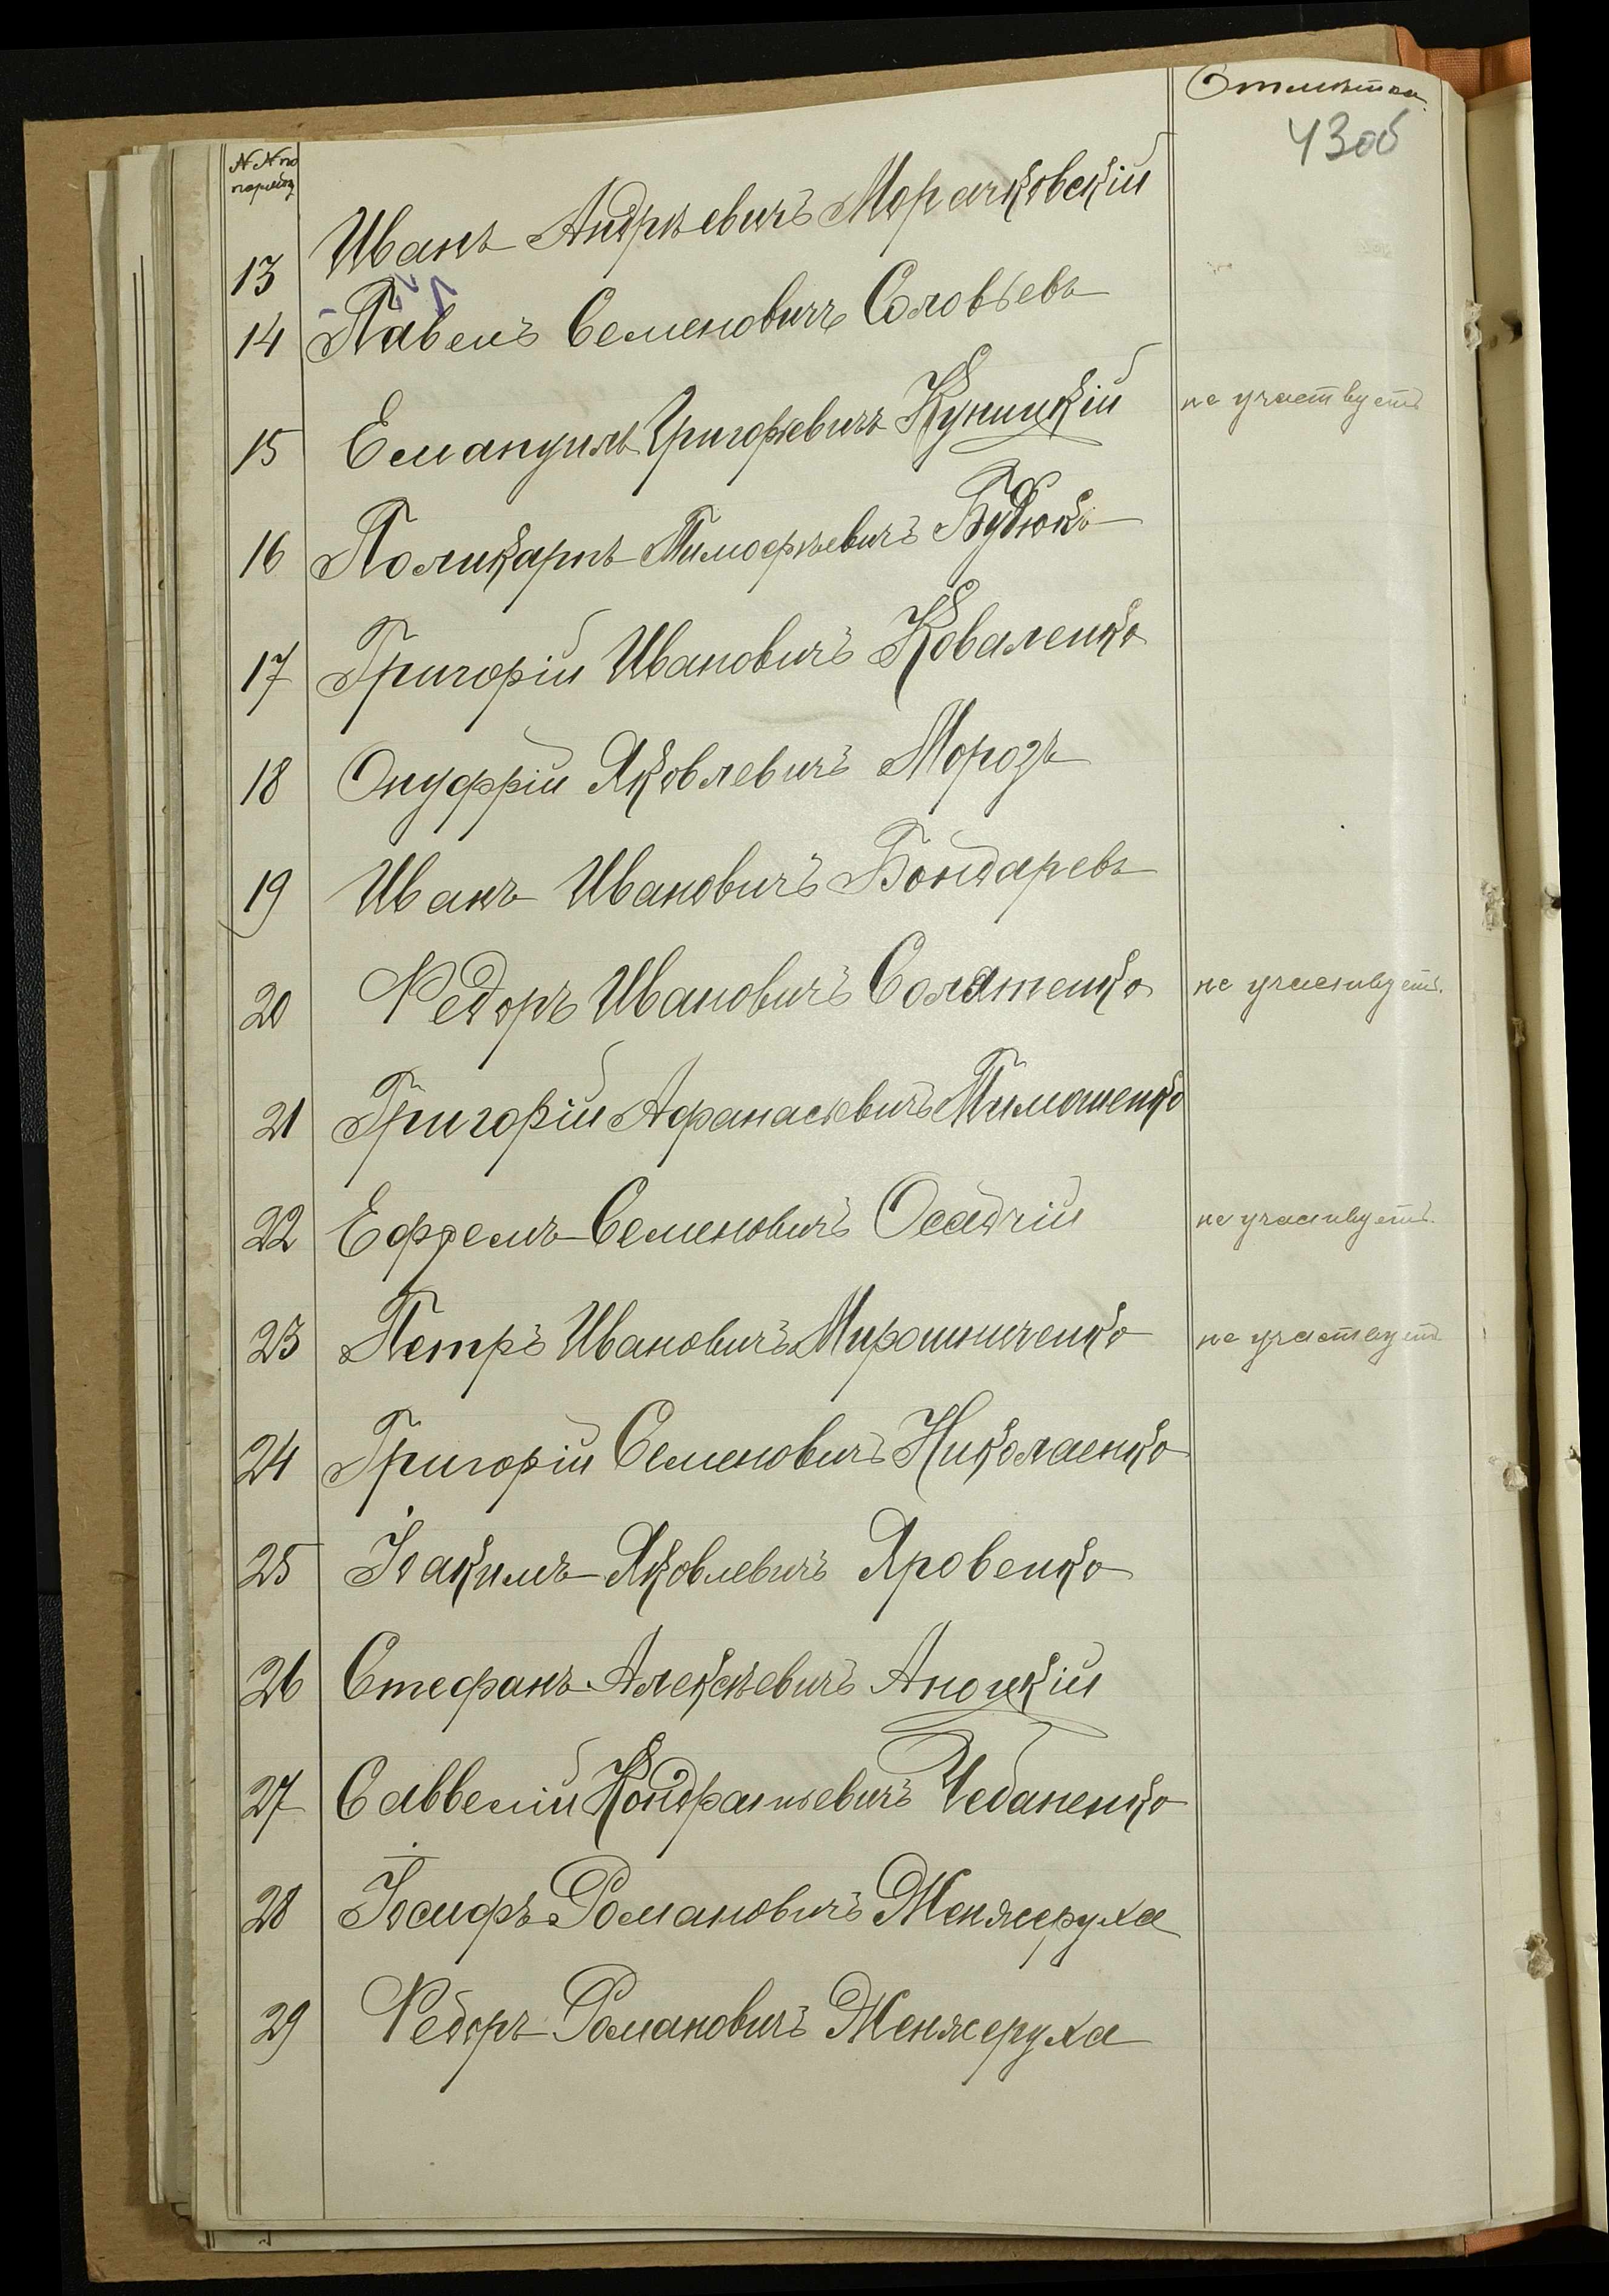 Отмѣтка.
43об
№№ по порядку
13 Иванъ АндрѣевичъМорачковскій
14 Павелъ Семеновичъ Соловьевъ
15 Емануилъ Григорьевичъ Куницкій не участвуетъ
16 Поликарпъ Тимофѣевичъ Будюкъ
17 Григорій Ивановичъ Коваленко
18 Онуфрій Яковлевичъ Морозъ
19 Иванъ Ивановичъ Бондаревъ
20 Ѳедоръ Ивановичъ Солятенко не участвуетъ.
21 Григорій Афанасьевичъ Тимошенко
22 Ефремъ Семеновичъ Осадчій не участвуетъ.
23 Петръ Ивановичъ Мирошниченко не участвуетъ
24 Григорій Семеновичъ Николаенко
25 Іоакимъ Яковлевичъ Яровенко
26 Стефанъ Алексѣевичъ Аноцкій
27 Савветій Кондратьевичъ Чебаненко
28 Іосифъ Романовичъ Менжеруха
29 Ѳедоръ Романовичъ Менжеруха